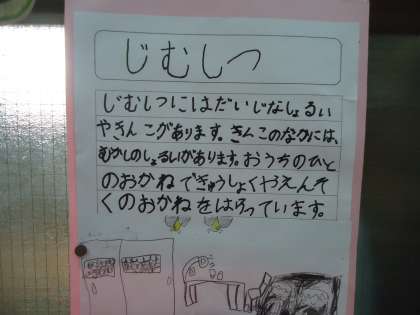 じむしつ
じむしつにはだいじなしょるい
やきんこがあります。きんこのなかには、
むかしのしょるいがあります。おうちのひと
のおかねできゅうしょくやえんそ
くのおかねをはらっています。